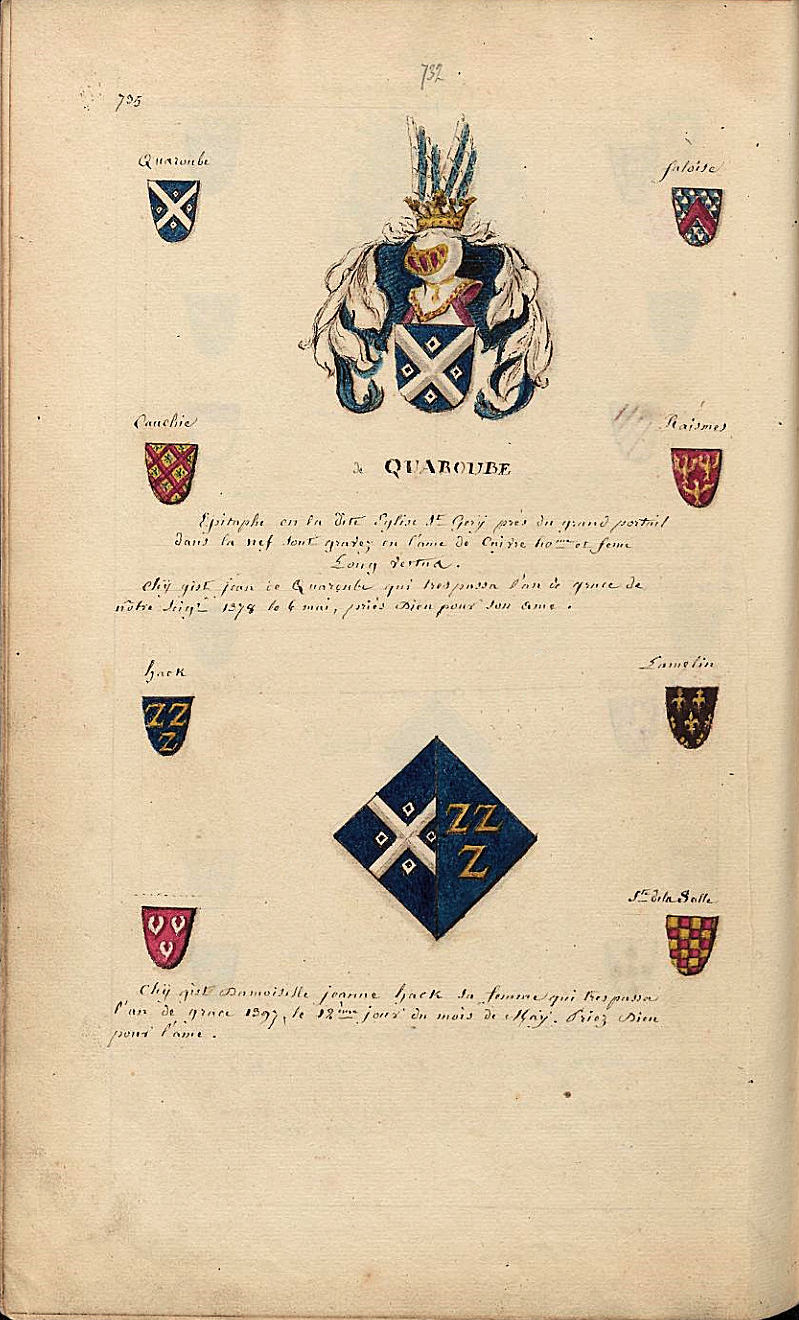 732.
735
Quaroube
faloise
Cauchie
Raismes
de QUAROUBE
Epitaphe en la dite Eglise St Gery près du grand portail
dans la nef sont gravez en lame de Cuivre home et feme
Chÿ gist jean de Quaroube qui trespassa l'an de grace de
nôtre Seigr 1378 le 6 mai, priés Dieu pour son ame.
hack
Lamelin
ZZ
Z
ZZ
Z
Ste dela Salle
Chÿ gist Damoiselle jeanne hack sa femme qui trespassa
l'an de grace 1397, le 12ème jour du mois de Maÿ. Priez Dieu
pour l'âme.